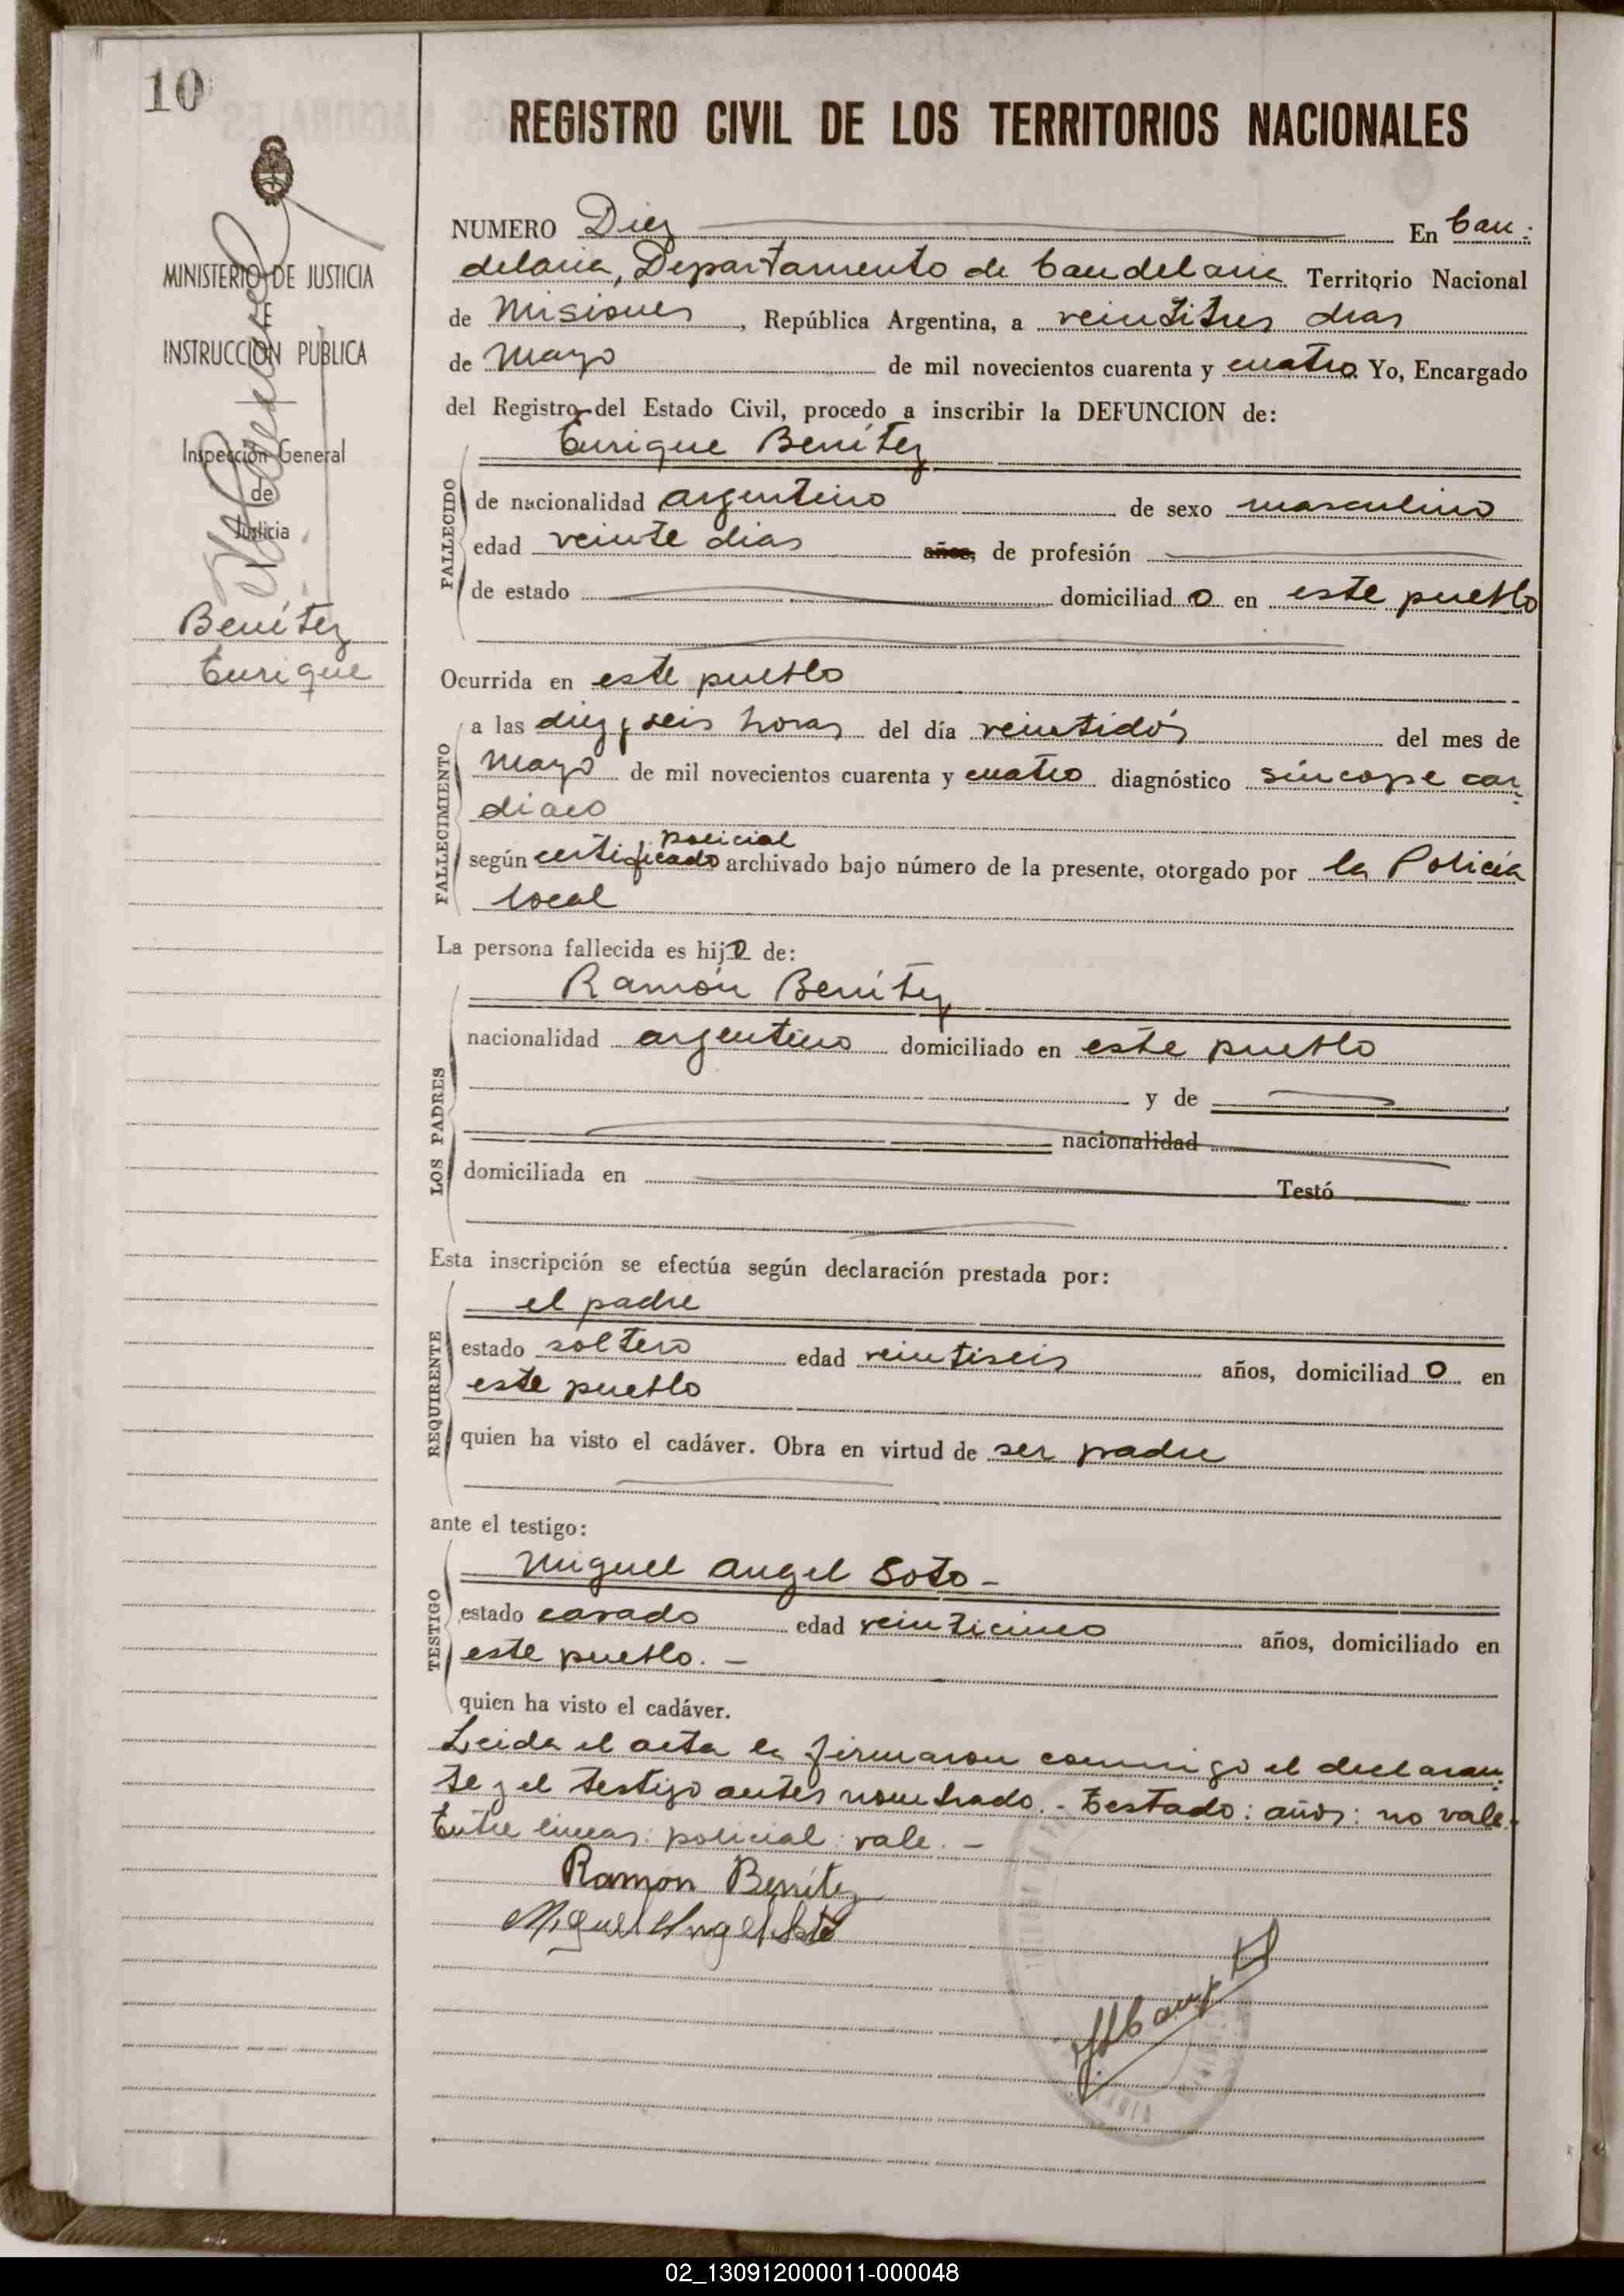 10
MINISTERIO DE JUSTICIA
E
INSTRUCCION PUBLICA
Inspección General
de
Justicia
Benítez
Enrique
REGISTRO CIVIL DE LOS TERRITORIOS NACIONALES
NUMERO Diez En Can-
delaria, Departamento de Candelaria Territorio Nacional
de Misiones, República Argentina, a veintitres dias
de Mayo de mil novecientos cuarenta y cuatro Yo, Encargado
del Registro del Estado Civil, procedo a inscribir la DEFUNCION de:
Enrique Benítez
FALLECIDO
de nacionalidad argentino de sexo masculino
edad veinte dias años, de profesión
de estado domiciliado en este pueblo
Ocurrida en este pueblo
FALLECIMIENTO
a las diez y seis horas del día veintidós del mes de
Mayo de mil novecientos cuarenta y cuatro diagnóstico síncope car-
diaco
policial
según certificado archivado bajo número de la presente, otorgado por la Policía
local
La persona fallecida es hijo de:
LOS PADRES
Ramón Benítez
nacionalidad argentino domiciliado en este pueblo
y de
nacionalidad
domiciliada en Testó
Esta inscripción se efectúa según declaración prestada por:
REQUIRENTE
el padre
estado soltero edad veintiseis años, domiciliado en
este pueblo
quien ha visto el cadáver. Obra en virtud de ser padre
ante el testigo:
TESTIGO
Miguel Angel Soto -
estado casado edad veinticinco años, domiciliado en
este pueblo. -
quien ha visto el cadáver.
Leida el acta la firmaron conmigo el declaran-
te y el testigo antes nombrado. - Testado: años: no vale.-
Entre lineas: policial: vale. -
Ramón Benítez
Miguel Angel Soto
02_130912000011-000048